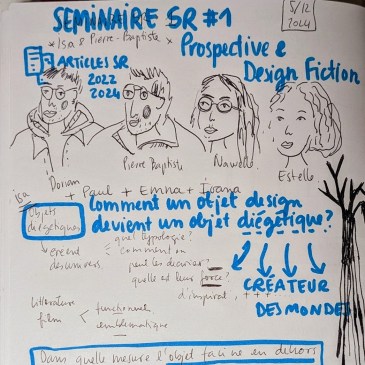 SEMINAIRE SR #1
5/12
2024
* Isa & Pierre-Baptiste *
Prospective &
Design Fiction
ARTICLES SR
2022
2024
Dorian
Pierre Baptiste
Nawelle
Estelle
isa
+ Paul + Emma + Ioana
Objets
diégétiques
Comment un objet design
devient un objet diégétique?
→ créent
des univers
quelle typologie?
comment on
peut les décrire?
quelle est leur force?
d'impact, +++
CRÉATEUR
DES MONDES
littérature
film
fonctionnel
emblématique
Dans quelle mesure l'objet facine en dehors